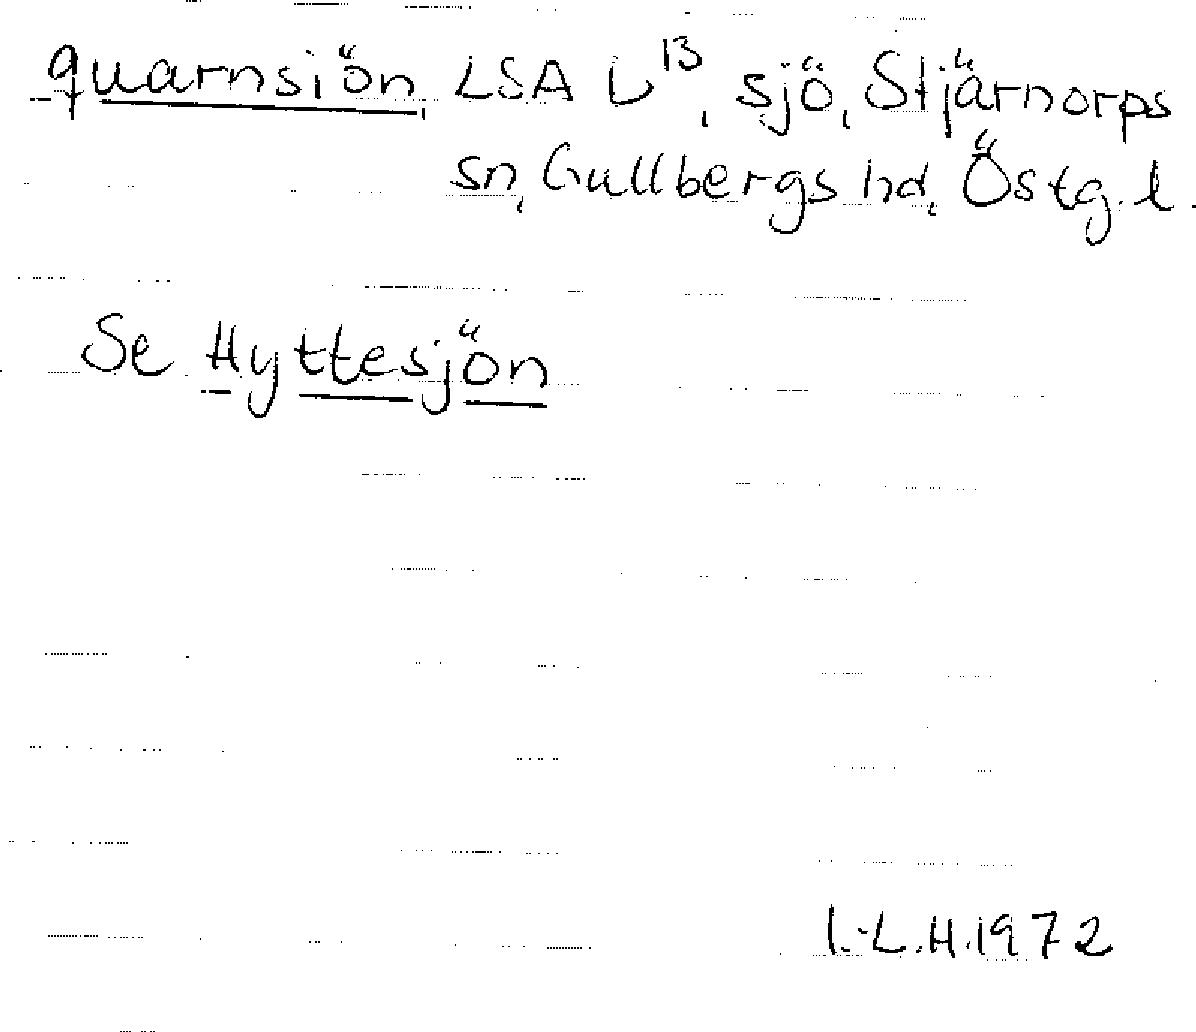 quarnsiön, LSA U¹³, sjö, Stjärnorps
sn, Gullbergs hd, Östg.l.
Se Hyttesjön
I.-L.H.1972